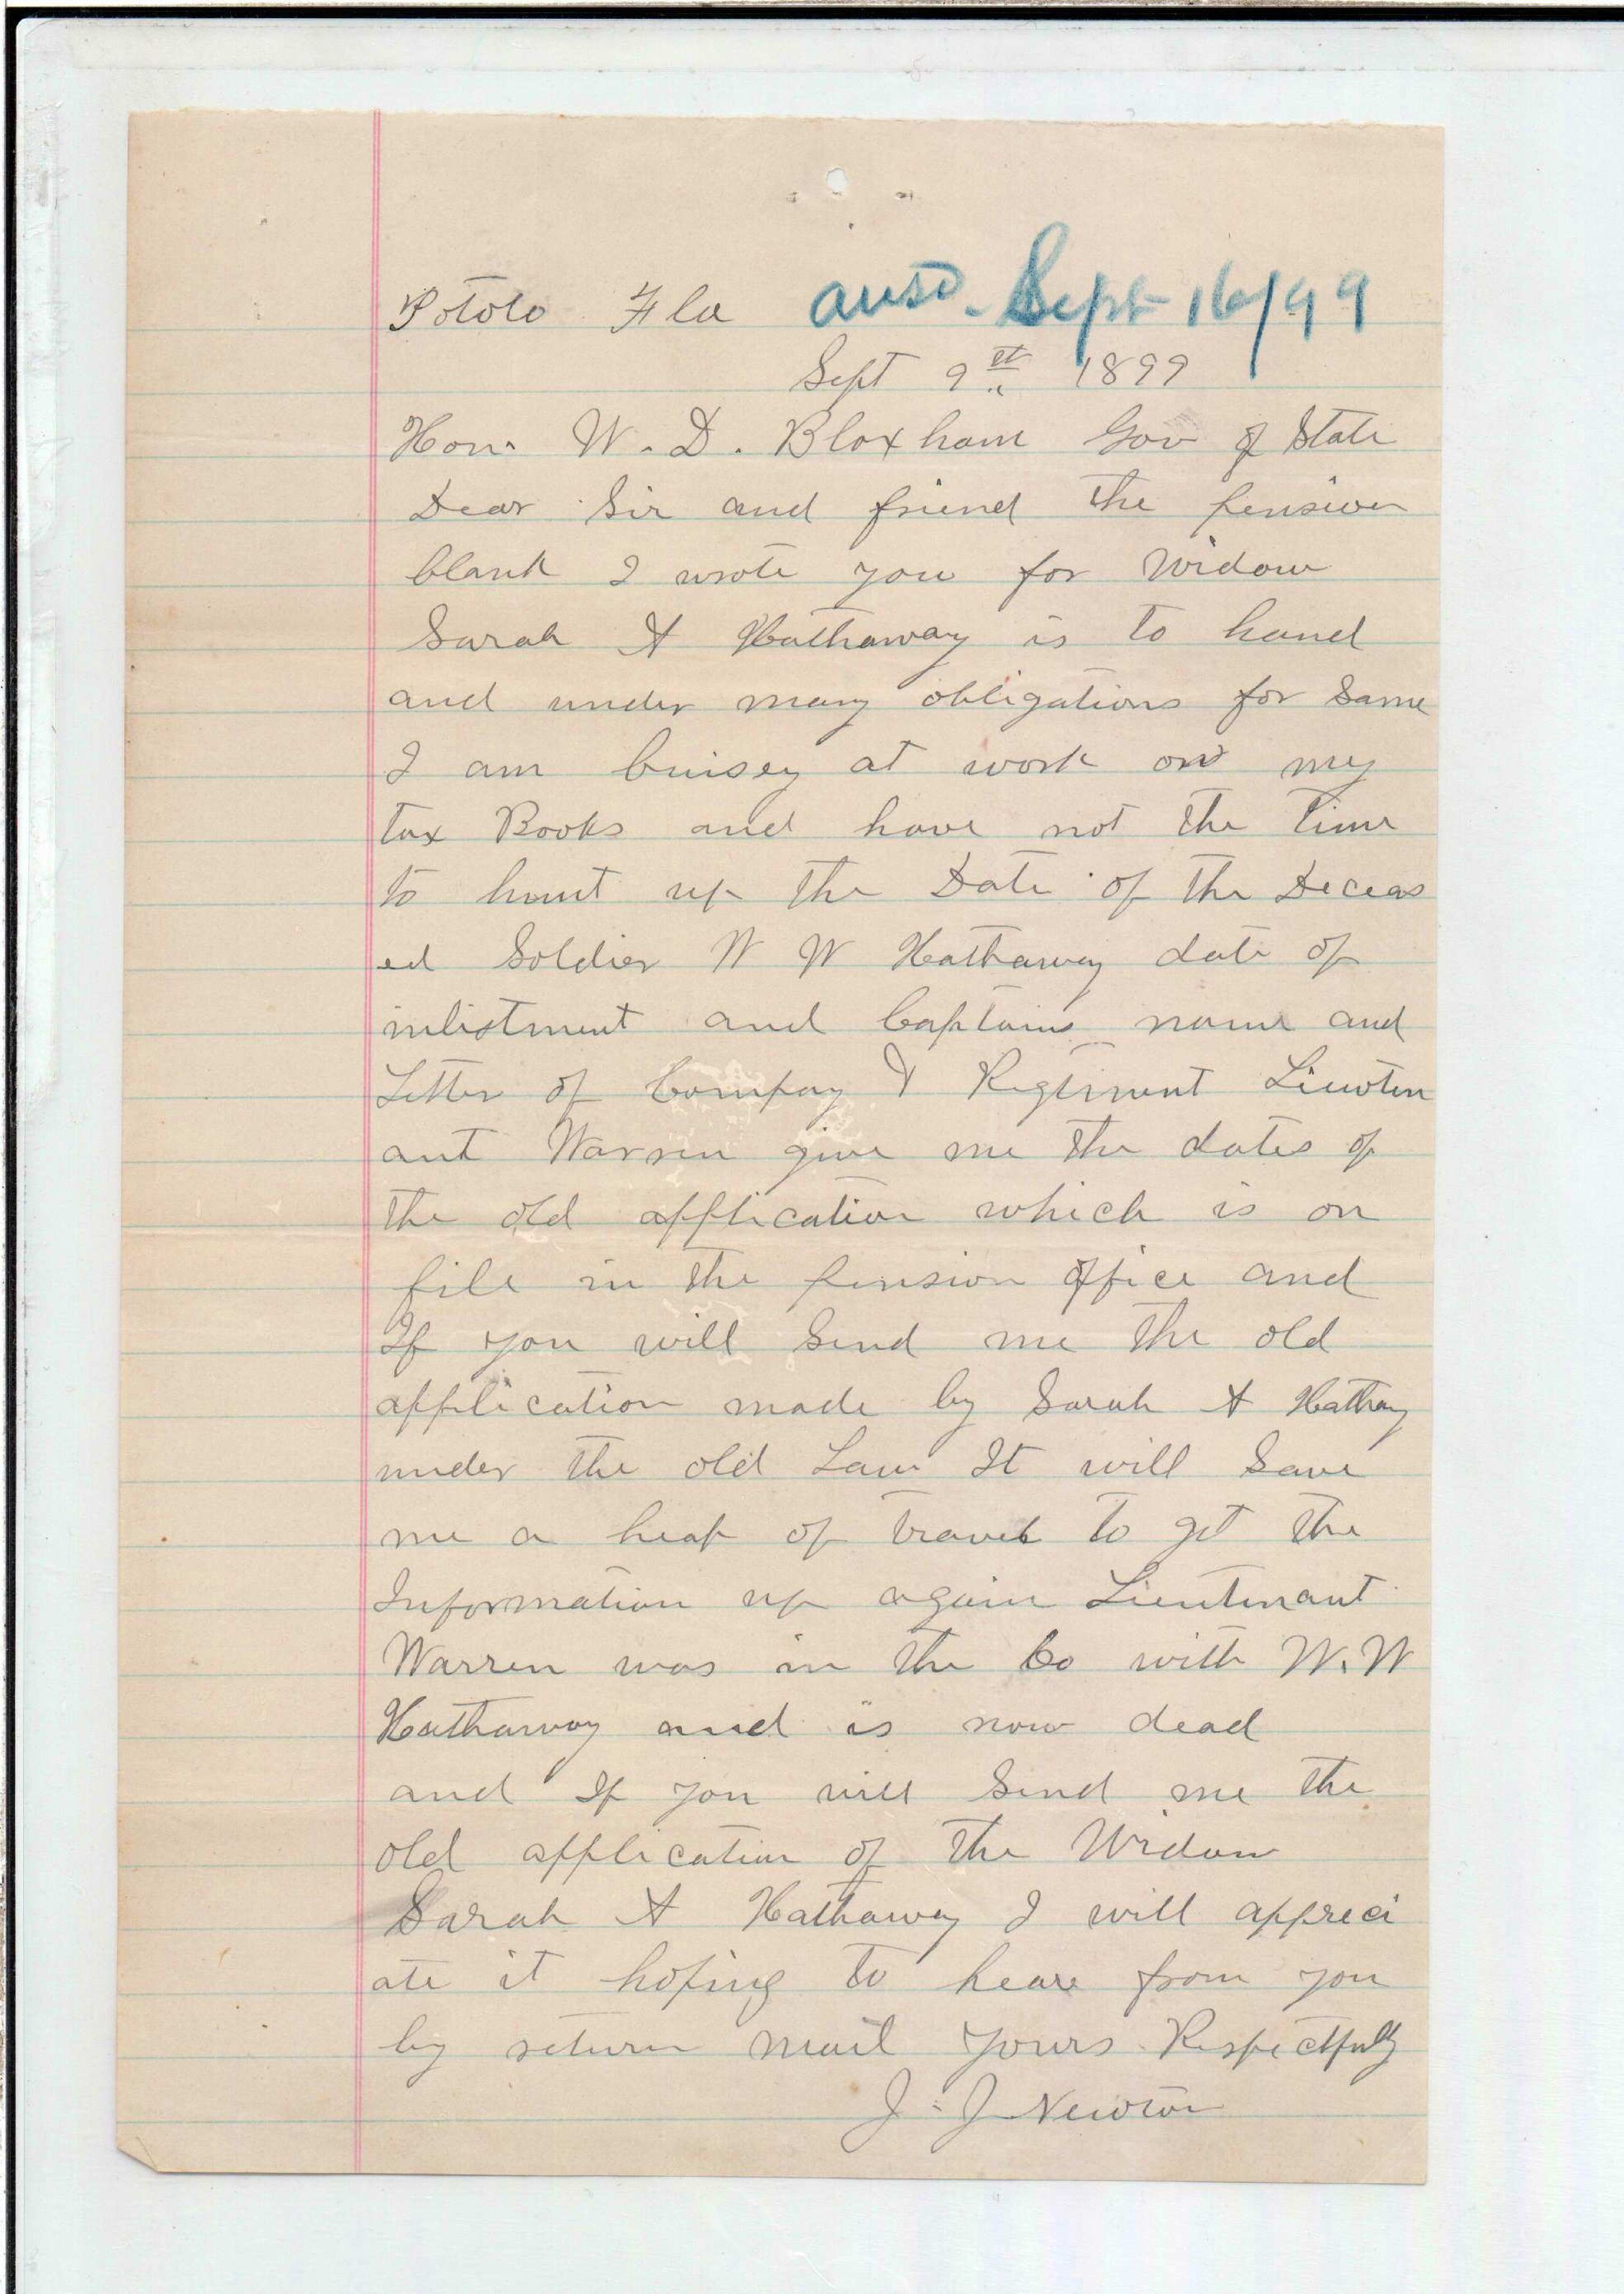 Pototo Fla ansd. Sept 16/99
Sept 9st 1899
Hon. W. D. Bloxham Gov of State
Dear Sir and friend the pension
blank I wrote you for Widow
Sarah A Hathaway is to hand
and under many obligations for Same
I am buisey at work on my
tax Books and have not the time
to hunt up the Date of the Deceas
ed Soldier W W Hathaway date of
inlistment and Captains name and
Letter of Compay & Regtiment Liewten
ant Warren give me the dates of
the old application which is on
file in the pension office and
If you will Send me the old
application made by Sarah A Hathay
under the old Law It will Save
me a heap of travel to get the
Information up again Lieutenant
Warren was in the Co with W. W
Hathaway and is now dead
and If you will Send me the
old application of the Widow
Sarah A Hathaway I will appreci
ate it hoping to heare from you
by return mail Yours Respectfully
J. J Newton